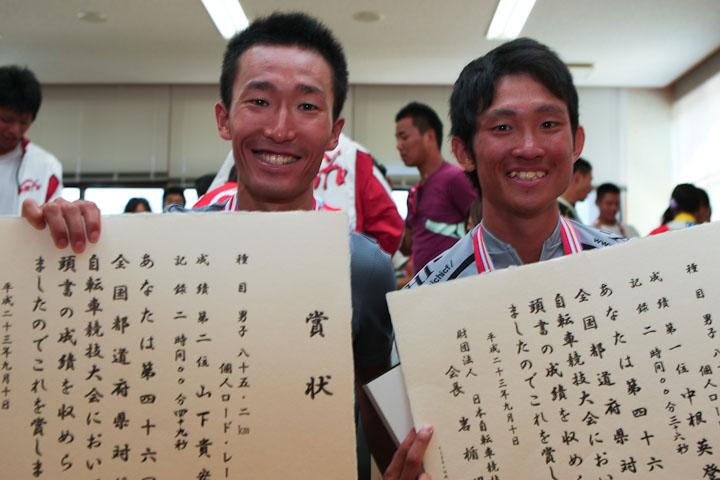 賞状
種目 男子 八十五・二㎞
個人ロード・レー
成績 第二位 山下貴宏
記録 二時間〇〇分四十九秒
あなたは第四十六回
全国都道府県対
自転車競技大会におい
頭書の成績を収めら
ましたのでこれを賞しま
平成二十三年九月十日
種目 男子 八十
個人ロー
成績 第一位 中根英登
記録 二時間〇〇分三六秒
あなたは第四十六
全国都道府県対
自転車競技大会にお
頭書の成績を収め
ましたのでこれを賞し
平成二十三年九月十日
財団法人 日本自転車競
会長 岩楯